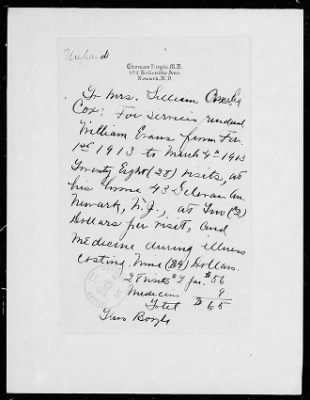 Unpaid
Thomas Boyle, M.D.
Newark, N.J.
To Mrs. Lilliam
Cox: For services rendered
William Evans from Fe.
1st 1913 to March 4th 1913
Twenty Eight (28) visits, at
his home 43 Delavan Av.
Newark, N.J., at Two ($2)
Dollars per visit, and
medicine during illness
costing Nine ($9) Dollars.
28 Visits $2 per. $56
Medicine 9
Total $65
Thos Boyle